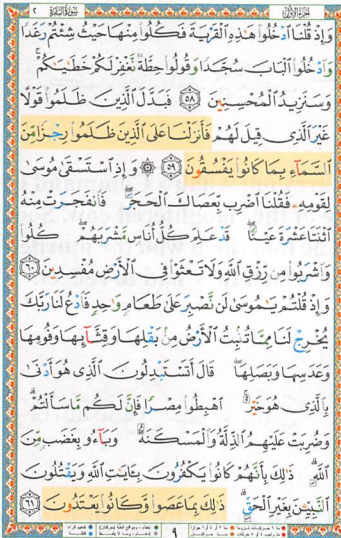 الجزء الأول سورة البقرة ٢
وَإِذْ قُلْنَا ٱدْخُلُوا۟ هَٰذِهِ ٱلْقَرْيَةَ فَكُلُوا۟ مِنْهَا حَيْثُ شِئْتُمْ رَغَدًا
وَٱدْخُلُوا۟ ٱلْبَابَ سُجَّدًا وَقُولُوا۟ حِطَّةٌ نَّغْفِرْ لَكُمْ خَطَٰيَٰكُمْ ۚ
وَسَنَزِيدُ ٱلْمُحْسِنِينَ ٥٨ فَبَدَّلَ ٱلَّذِينَ ظَلَمُوا۟ قَوْلًا
غَيْرَ ٱلَّذِى قِيلَ لَهُمْ فَأَنزَلْنَا عَلَى ٱلَّذِينَ ظَلَمُوا۟ رِجْزًا مِّنَ
ٱلسَّمَآءِ بِمَا كَانُوا۟ يَفْسُقُونَ ٥٩ ۞ وَإِذِ ٱسْتَسْقَىٰ مُوسَىٰ
لِقَوْمِهِۦ فَقُلْنَا ٱضْرِب بِّعَصَاكَ ٱلْحَجَرَ ۖ فَٱنفَجَرَتْ مِنْهُ
ٱثْنَتَا عَشْرَةَ عَيْنًا ۖ قَدْ عَلِمَ كُلُّ أُنَاسٍ مَّشْرَبَهُمْ ۖ كُلُوا۟
وَٱشْرَبُوا۟ مِن رِّزْقِ ٱللَّهِ وَلَا تَعْثَوْا۟ فِى ٱلْأَرْضِ مُفْسِدِينَ ٦٠
وَإِذْ قُلْتُمْ يَٰمُوسَىٰ لَن نَّصْبِرَ عَلَىٰ طَعَامٍ وَٰحِدٍ فَٱدْعُ لَنَا رَبَّكَ
يُخْرِجْ لَنَا مِمَّا تُنۢبِتُ ٱلْأَرْضُ مِنۢ بَقْلِهَا وَقِثَّآئِهَا وَفُومِهَا
وَعَدَسِهَا وَبَصَلِهَا ۖ قَالَ أَتَسْتَبْدِلُونَ ٱلَّذِى هُوَ أَدْنَىٰ
بِٱلَّذِى هُوَ خَيْرٌ ۚ ٱهْبِطُوا۟ مِصْرًا فَإِنَّ لَكُم مَّا سَأَلْتُمْ ۗ
وَضُرِبَتْ عَلَيْهِمُ ٱلذِّلَّةُ وَٱلْمَسْكَنَةُ وَبَآءُو بِغَضَبٍ مِّنَ
ٱللَّهِ ۗ ذَٰلِكَ بِأَنَّهُمْ كَانُوا۟ يَكْفُرُونَ بِـَٔايَٰتِ ٱللَّهِ وَيَقْتُلُونَ
ٱلنَّبِيِّـۧنَ بِغَيْرِ ٱلْحَقِّ ۗ ذَٰلِكَ بِمَا عَصَوا۟ وَّكَانُوا۟ يَعْتَدُونَ ٦١
٩